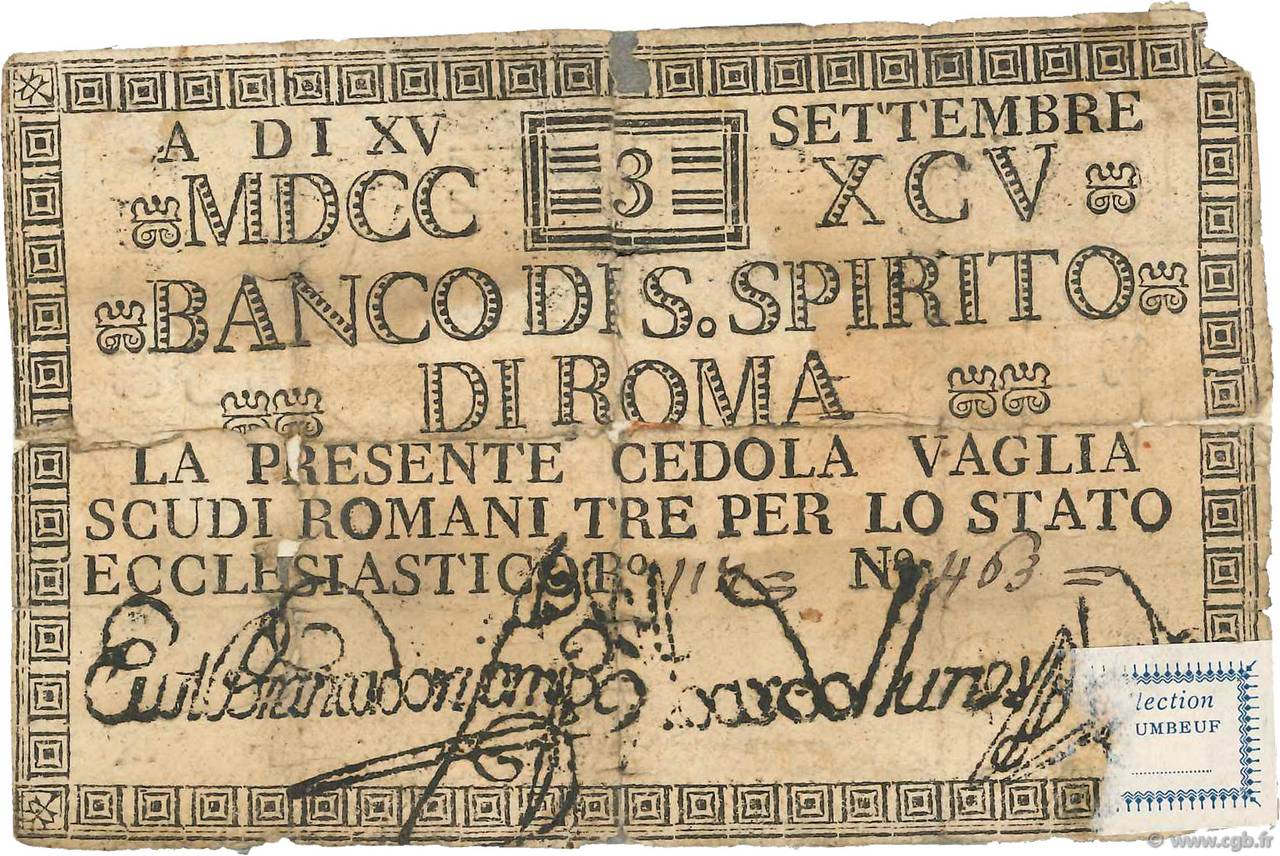 A DI XV 3 SETTEMBRE
MDCC XCV
BANCO DI S. SPIRITO
DI ROMA
LA PRESENTE CEDOLA VAGLIA
SCUDI ROMANI TRE PER LO STATO
ECCLESIASTICO Rº Nº 463
lection
UMBEUF
© www.cgb.fr